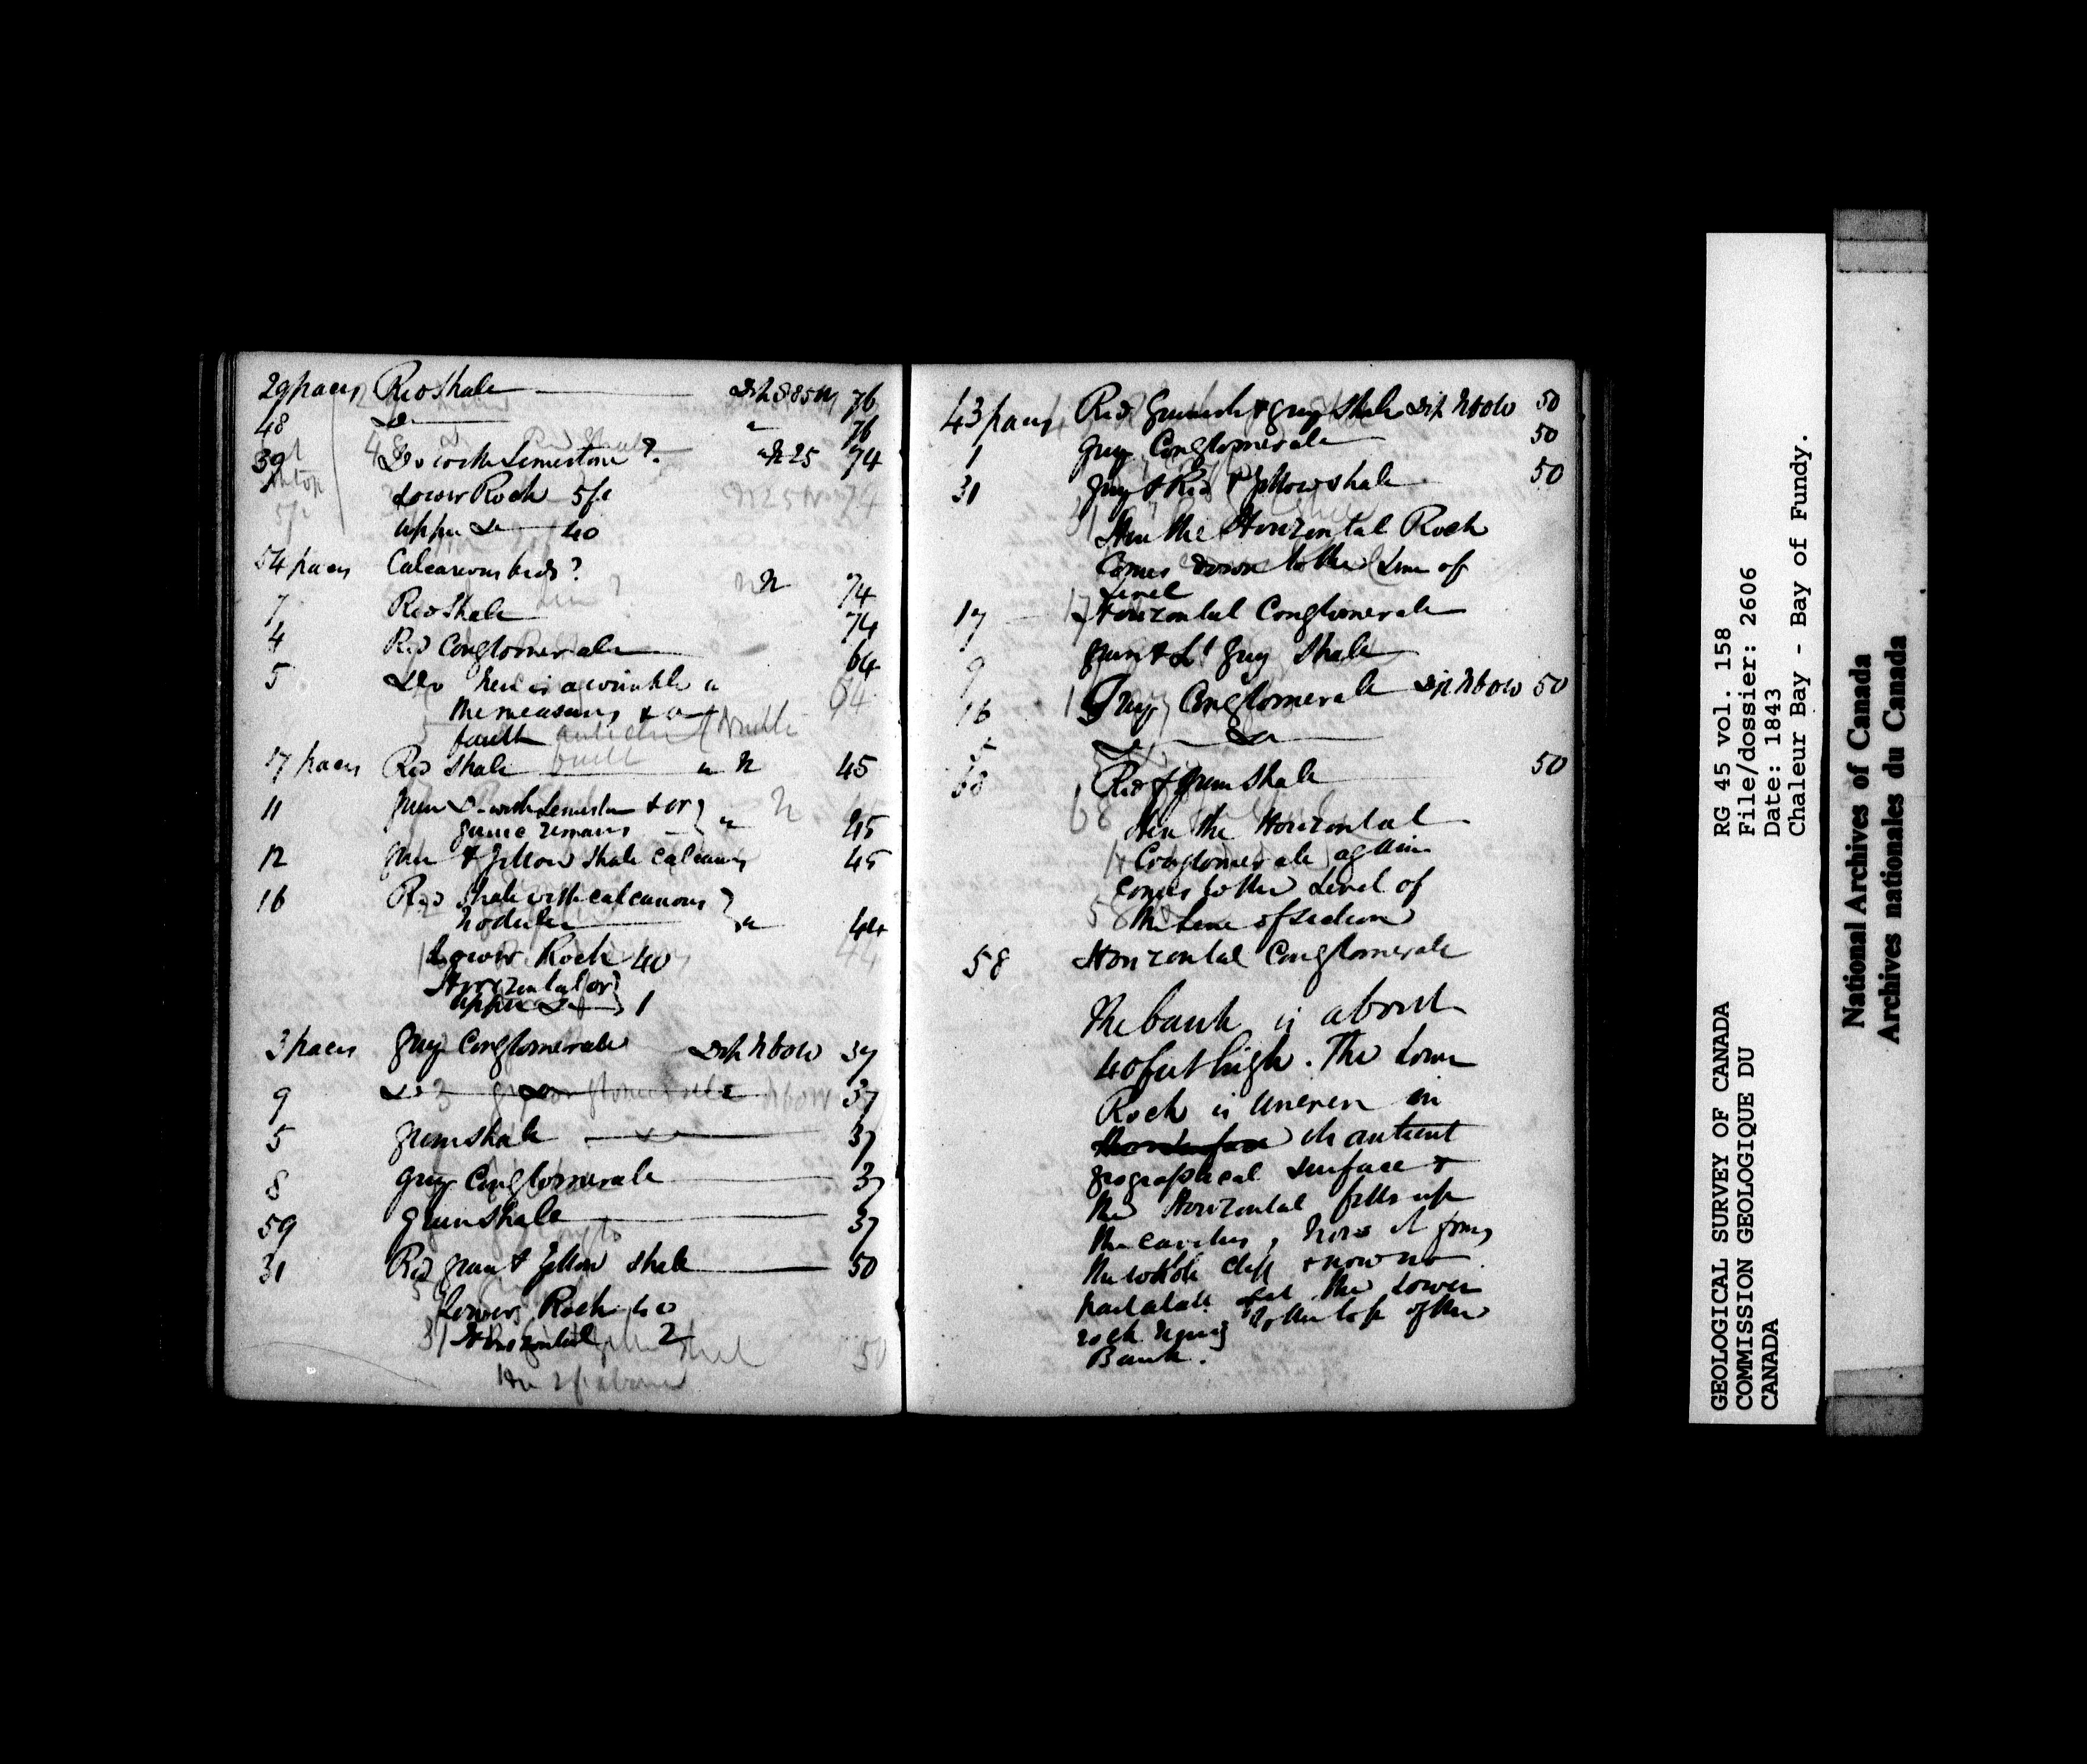 29 paces Red Shale Dip S 85 W 76
48 Do " 76
39 Do with Limestone? " N 25 74
Lower Rock 5 ft
upper Do 40
54 paces Calcareous beds? N 74
7 Red Shale 74
4 Red Conglomerate 64
5 Do here is a wrinkle in
the measures & a
fault
17 paces Red Shale " N 45
11 green Do with Limestone & or
ganic remains " 45
12 green & yellow shale calcareous 45
16 Red Shale with calcareous
nodules " 44
Lower Rock 40
Horizontal or
upper Do 1
3 paces grey Conglomerate Dip N 60 W 37
9 Do Do 37
5 green shale 37
8 grey Conglomerate 37
59 green shale 37
31 Red green & yellow shale 50
Lower Rock 40
Horizontal 2
43 paces Red Greenish & grey Shale Dip N 60 W 50
1 grey Conglomerate 50
31 grey & Red & yellow shale 50
Here the Horizontal Rock
comes down to the Line of
Level
17 Horizontal Conglomerate
9 green & Lt grey Shale
16 Grey Conglomerate Dip N 60 W 50
5 Do Do
68 Red & green Shale 50
Here the Horizontal
Conglomerate again
comes to the Level of
the Line of section
58 Horizontal Conglomerate
The bank is about
40 feet high. The Lower
Rock is uneven in
its antient
geographical surface &
the Horizontal fills up
the cavities, now it forms
the whole cliff & now no
part at all the Lower
rock rising to the top of the
Bank.
GEOLOGICAL SURVEY OF CANADA RG 45 vol. 158
COMMISSION GEOLOGIQUE DU File/dossier: 2606
CANADA Date: 1843
Chaleur Bay - Bay of Fundy.
National Archives of Canada
Archives nationales du Canada